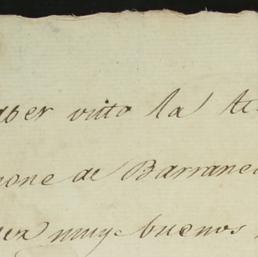 aber visto la te
none de Barrane
uen muy buenos